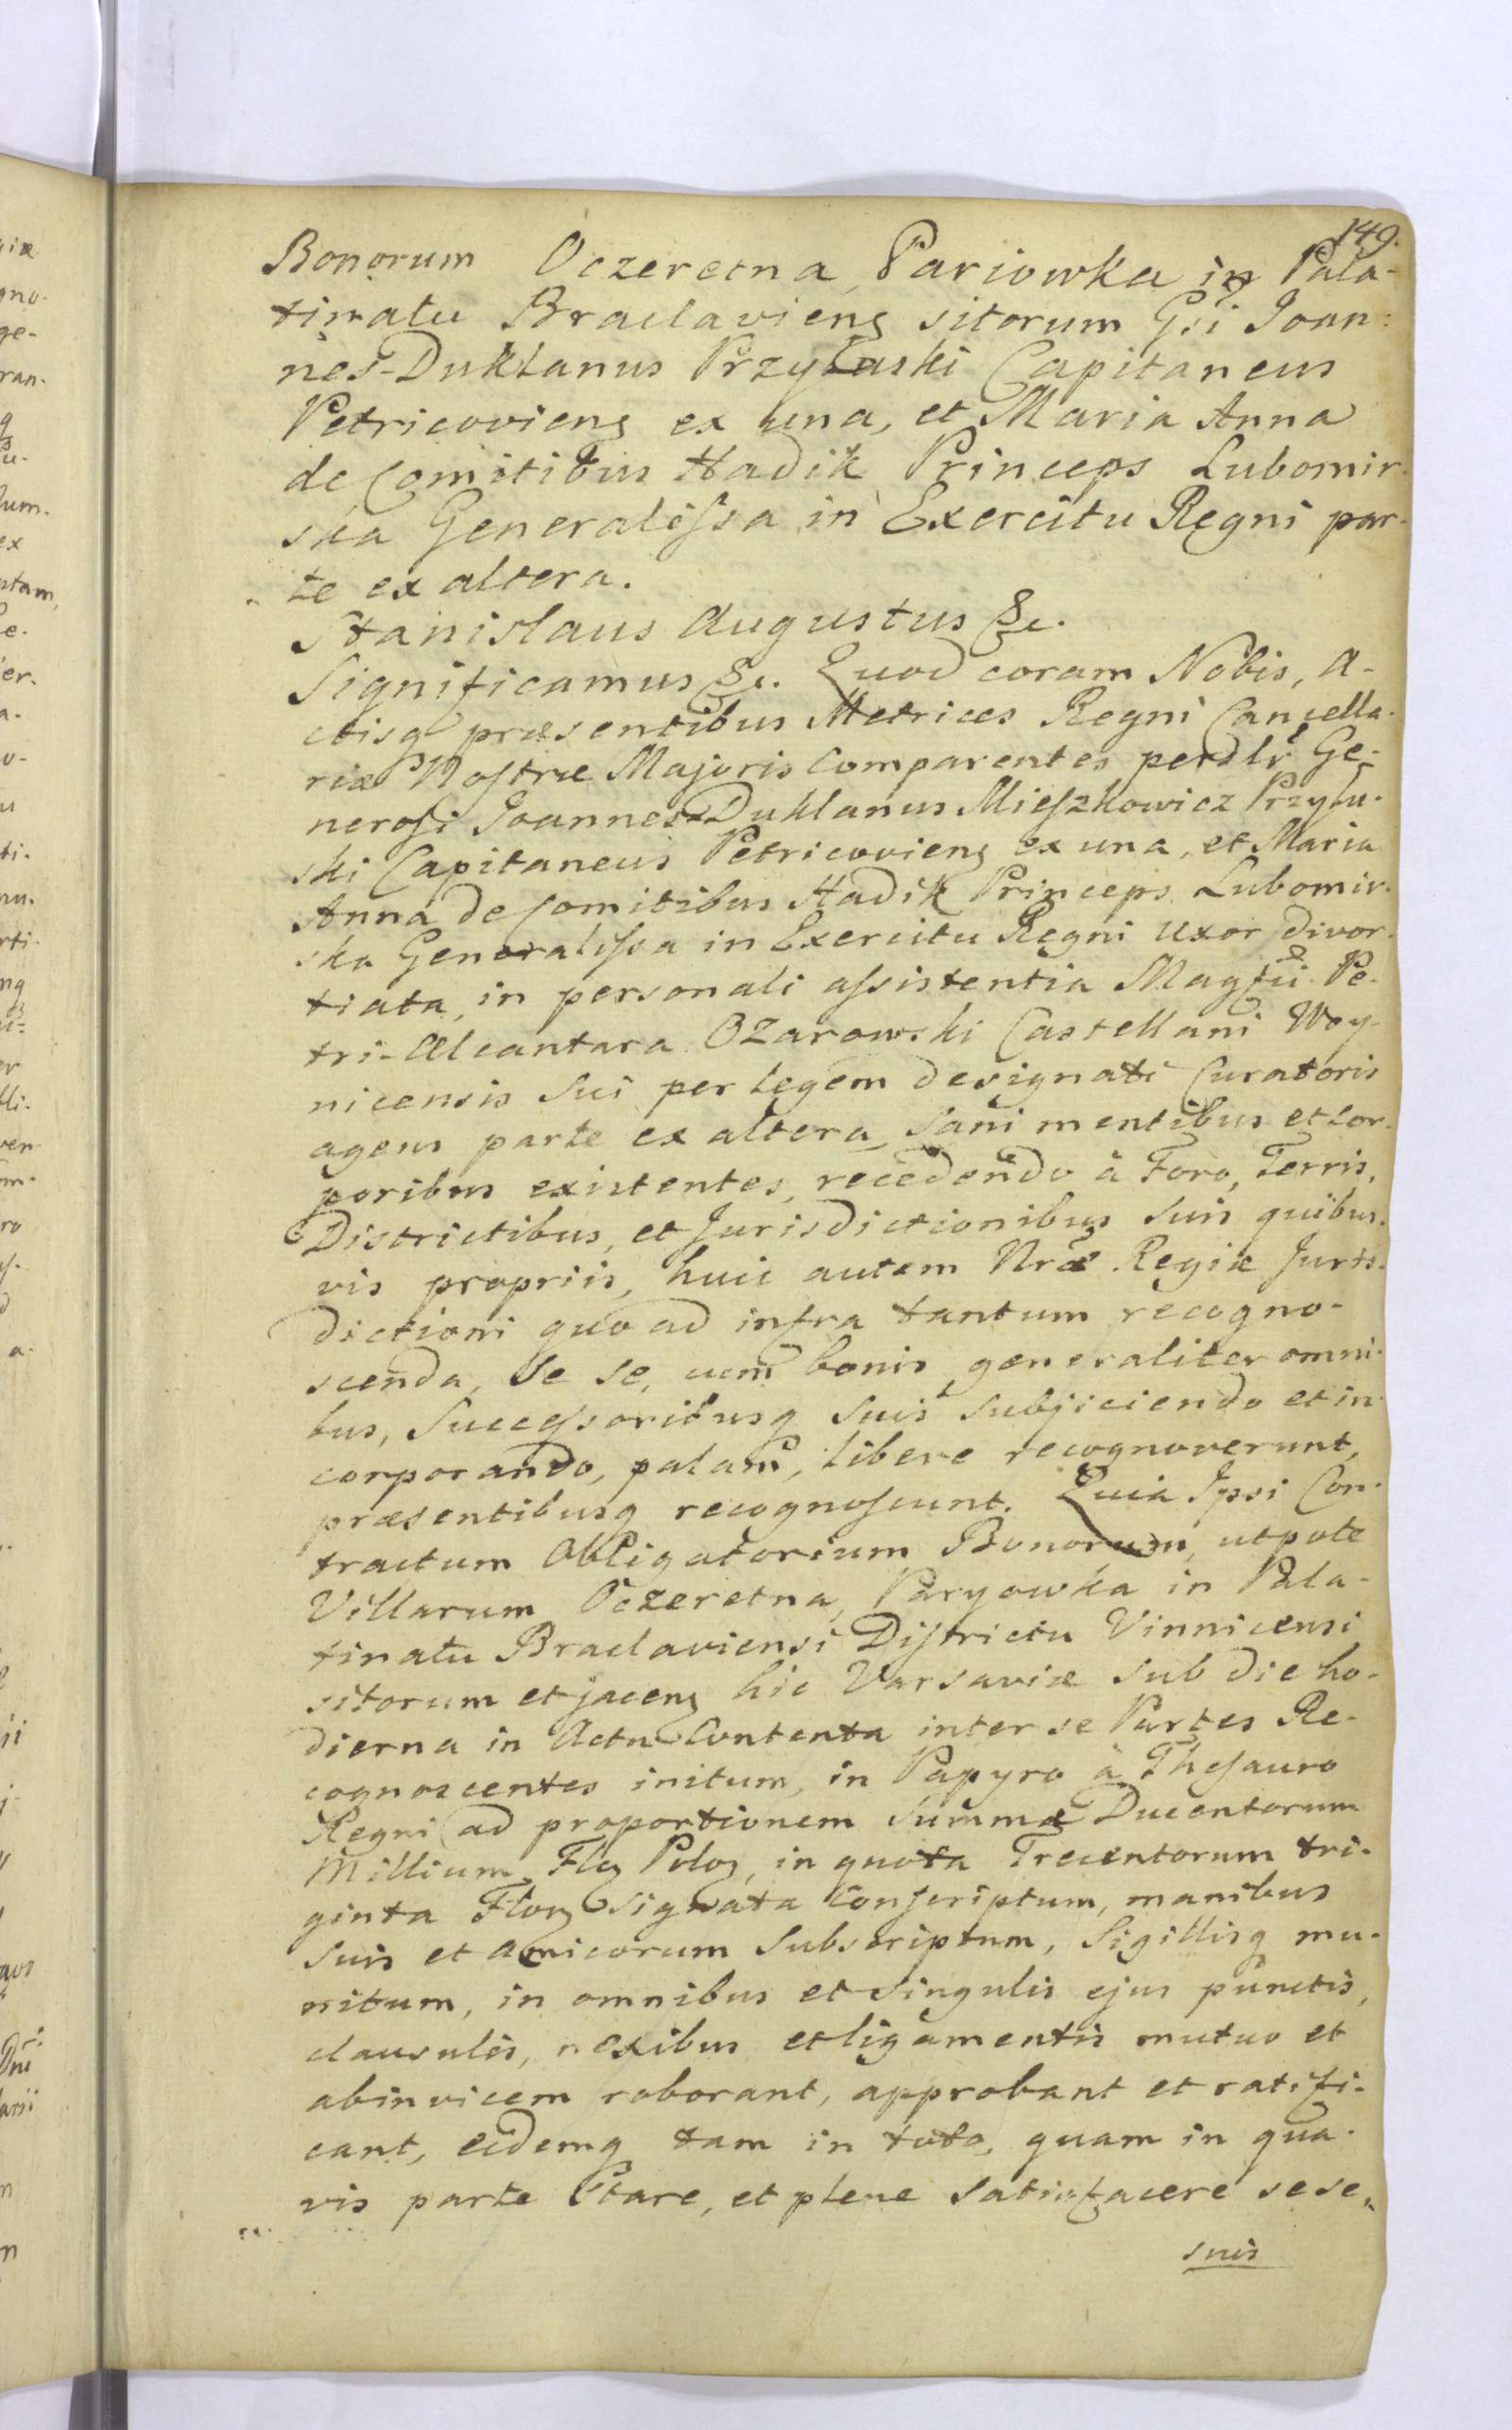 149.
Bonorum Oczeretna, Pariowka in Pala-
tinatu Braclavieng sitorum Gsi Joan:
nes-Duklanus Przyłuski Capitaneus
Petricovieng ex una, et Maria Anna
de Comitibus Hadik Princeps Lubomir-
ska Generaliſsa in Exercitu Regni par-
te ex altera.
Stanislaus Augustus &c.
Significamus &c. Quod coram Nobis, A-
ctisq præsentibus Metrices Regni Cancella-
riæ Noſtræ Majoris Comparentes perslr Ge-
neroſi Joannes Duklanus Mieſzkowicz Przyłu-
ski Capitaneus Petricovieng ex una, et Maria
Anna de Comitibus Hadik Princeps Lubomir-
ska Generaliſsa in Exercitu Regni Uxor divor-
tiata, in personali aſsistentia Magfci Pe-
tri-Alcantara Ożarowski Castellani Woy-
nicensis sui per legem designati Curatoris
agens parte ex altera, sani mentibus et cor-
poribus existentes, recedendo à Foro, Terris,
Districtibus, et Jurisdictionibus suis quibus-
vis propriis, huic autem Nræ Regiæ Juris-
dictioni quo ad infra tantum recogno-
scenda, se se, cum bonis generaliter omni-
bus, Succeſsoribusq suis subjiciendo et in-
corporando, palam, libere recognoverunt,
præsentibusq recognoſcunt. Quia Ipsi Con-
tractum Obligatorium Bonorum, utpote
Villarum Oczeretna, Paryowka in Pala-
tinatu Braclaviensi Diſtrictu Vinnicensi
sitorum et jaceng hic Varsaviæ sub die ho-
dierna in Actu Contenta inter se Partes Re-
cognoscentes initum, in Papyro à Theſauro
Regni ad proportionem Summæ Ducentorum
Millium Flor Polon, in quota Trecentorum tri-
ginta Flor signata Conſcriptum, manibus
suis et amicorum Subscriptum, Sigillisq mu-
nitum, in omnibus et singulis ejus punctis,
clausulis, nexibus et ligamentis mutuo et
abinvicem roborant, approbant et ratifi-
cant, eidemq tam in toto, quam in qua-
vis parte Stare, et plene satisfacere sese,
suis